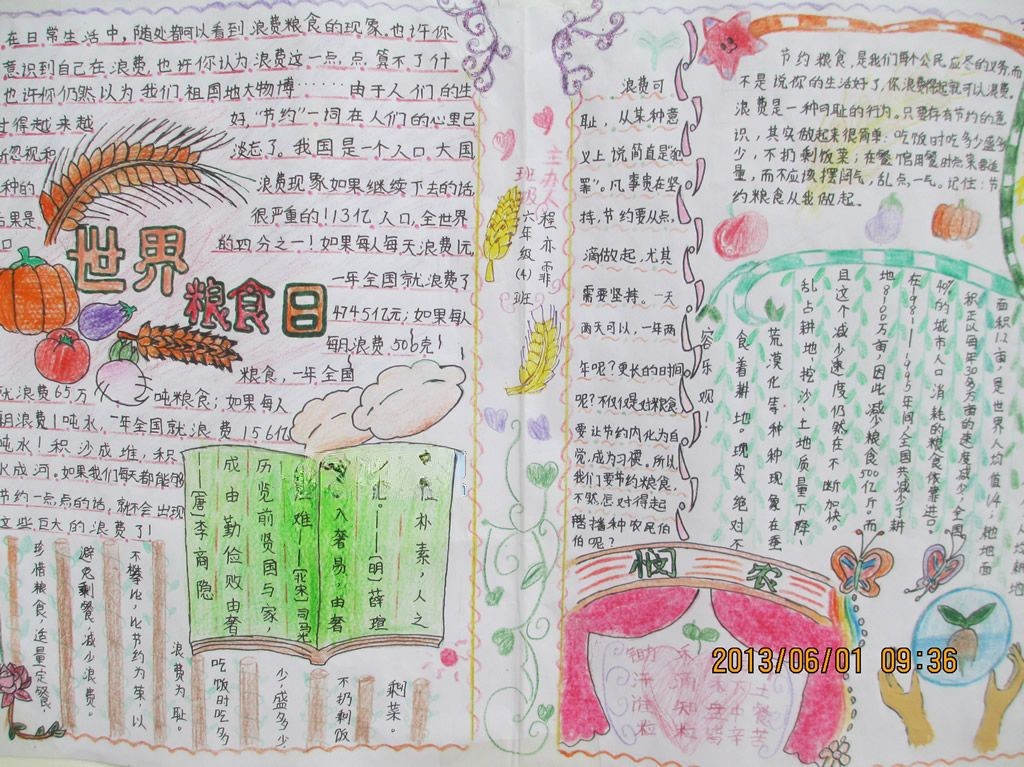 在日常生活中,随处都可以看到浪费粮食的现象.也许你
意识到自己在浪费,也许你认为浪费这一点,点,算不了什
也许你仍然以为我们祖国地大物博……由于人们的生
过得越来越好,"节约"一词在人们的心里已
忽视和淡忘了。我国是一个人口大国
种的浪费现象如果继续下去的话
后果是很严重的!13亿人口,全世界
口的四分之一!如果每人每天浪费1元
一年全国就浪费了
4745亿元;如果每人
每月浪费506克
粮食,一年全国
就浪费65万吨粮食;如果每人
月浪费1吨水,一年全国就浪费156亿
吨水!积沙成堆,积
水成河.如果我们每天都能够
节约一点点的话,就不会出现
这些巨大的浪费了!
世界
粮食日
俭朴素,人之
美北。——[明]薛瑄
入奢易,由奢
难—[北宋]司马光
历览前贤国与家,
成由勤俭败由奢
——[唐]李商隐
珍惜粮食,适量定餐,
避免剩餐,减少浪费。
不攀比,以节约为荣,以
浪费为耻。
吃饭时吃多
少,盛多少
不扔剩饭
剩菜。
主办人
程亦霏
班级
六年级(4)班
浪费可
耻,从某种意
义上说简直是犯
罪"。凡事贵在坚
持,节约要从点,
滴做起,尤其
需要坚持。一天
两天可以,一年两
年呢?更长的时间
呢?不仅仅是对粮食
要让节约内化为自
觉,成为习惯。所以
我们要节约粮食,
不然怎对得起
播种农民伯
伯呢?
节约粮食,是我们每个公民应尽的义务,而
不是说你的生活好了,你浪费得起就可以浪费。
浪费是一种可耻的行为。只要存有节约的意
识,其实做起来很简单:吃饭时吃多少盛多
少,不扔剩饭菜;在餐馆用餐时点菜要适
量,而不应该摆阔气,乱点,一气。记住:节
约粮食从我做起。
面积1.2亩,是世界人均值1/4,
积正以每年30多万亩的速度减少!全国
40%的城市人口消耗的粮食依靠进口。
在1981——1995年间,全国共减少了耕
地8100万亩,因此减少粮食500亿斤。而
且这个减少速度仍然在不断加快。
乱占耕地、挖沙、土地质量下降、
荒漠化等种种现象在蚕
食着耕地,现实绝对不
容乐观!
悯农
锄禾日当午
汗滴禾下土
2013/06/01 09:36